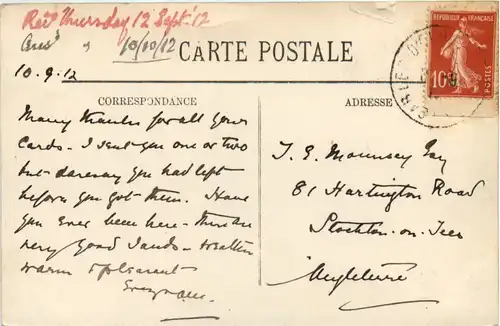 Recd Thursday 12 Sept. '12
Ansd 10/10/12
CARTE POSTALE
10.9.12
CORRESPONDANCE
ADRESSE
Many thanks for all your
Cards. I sent you one or two
but daresay you had left
before you got them. Have
you ever been here - there are
very good sands - weather
warm & pleasant
T. E. Mounsey Esq
81 Hartington Road
Stockton-on-Tees
Angleterre
REPUBLIQUE FRANÇAISE
10
POSTES